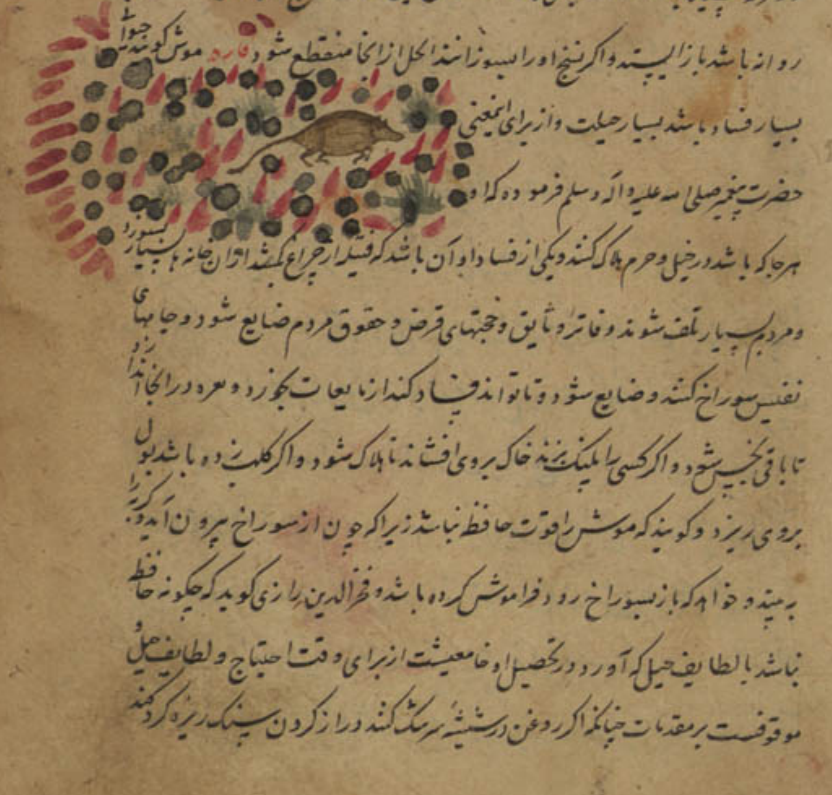 روانه باشد باز ایستد و اگر بیخ او را بسوزانند الحل از آنجا منقطع شود فاره موش گویند حیوانی
بسیار فساد باشد بسیار حیلت و از برای این معنی
حضرت پیغمبر صلی الله علیه و آله و سلم فرموده که او
هر جا که باشد در حل و حرم هلاک کنند و یکی از فساد او آن باشد که فتیله از چراغ بکشد و از آن خانه‌ها بسیار بسوزد
و مردم بسیار تلف شوند و دفاتر و وثایق و حجتهای قرض و حقوق مردم ضایع شود و جامهای
نفیس سوراخ کند و ضایع شود و تا تواند فساد کند از مایعات بخورد و بعره در آنجا اندازد
تا باقی نجس شود و اگر کسی را پلنک بزند خاک بروی افشاند تا هلاک شود و اگر کلب زده باشد بول
بروی ریزد و گویند که موش را قوت حافظه نباشد زیرا که چون از سوراخ بیرون آید و گربه را
به بیند و خواهد که باز بسوراخ رود فراموش کرده باشد و فخرالدین رازی گوید که چگونه حافظ
نباشد با لطایف حیل که آورد در تحصیل معیشت از برای وقت احتیاج و لطایف حیل
موقوفست بر مقدمات چنانکه اگر روغن در شیشه سر تنک کنند دراز کردن سنک ریزه کرد کند